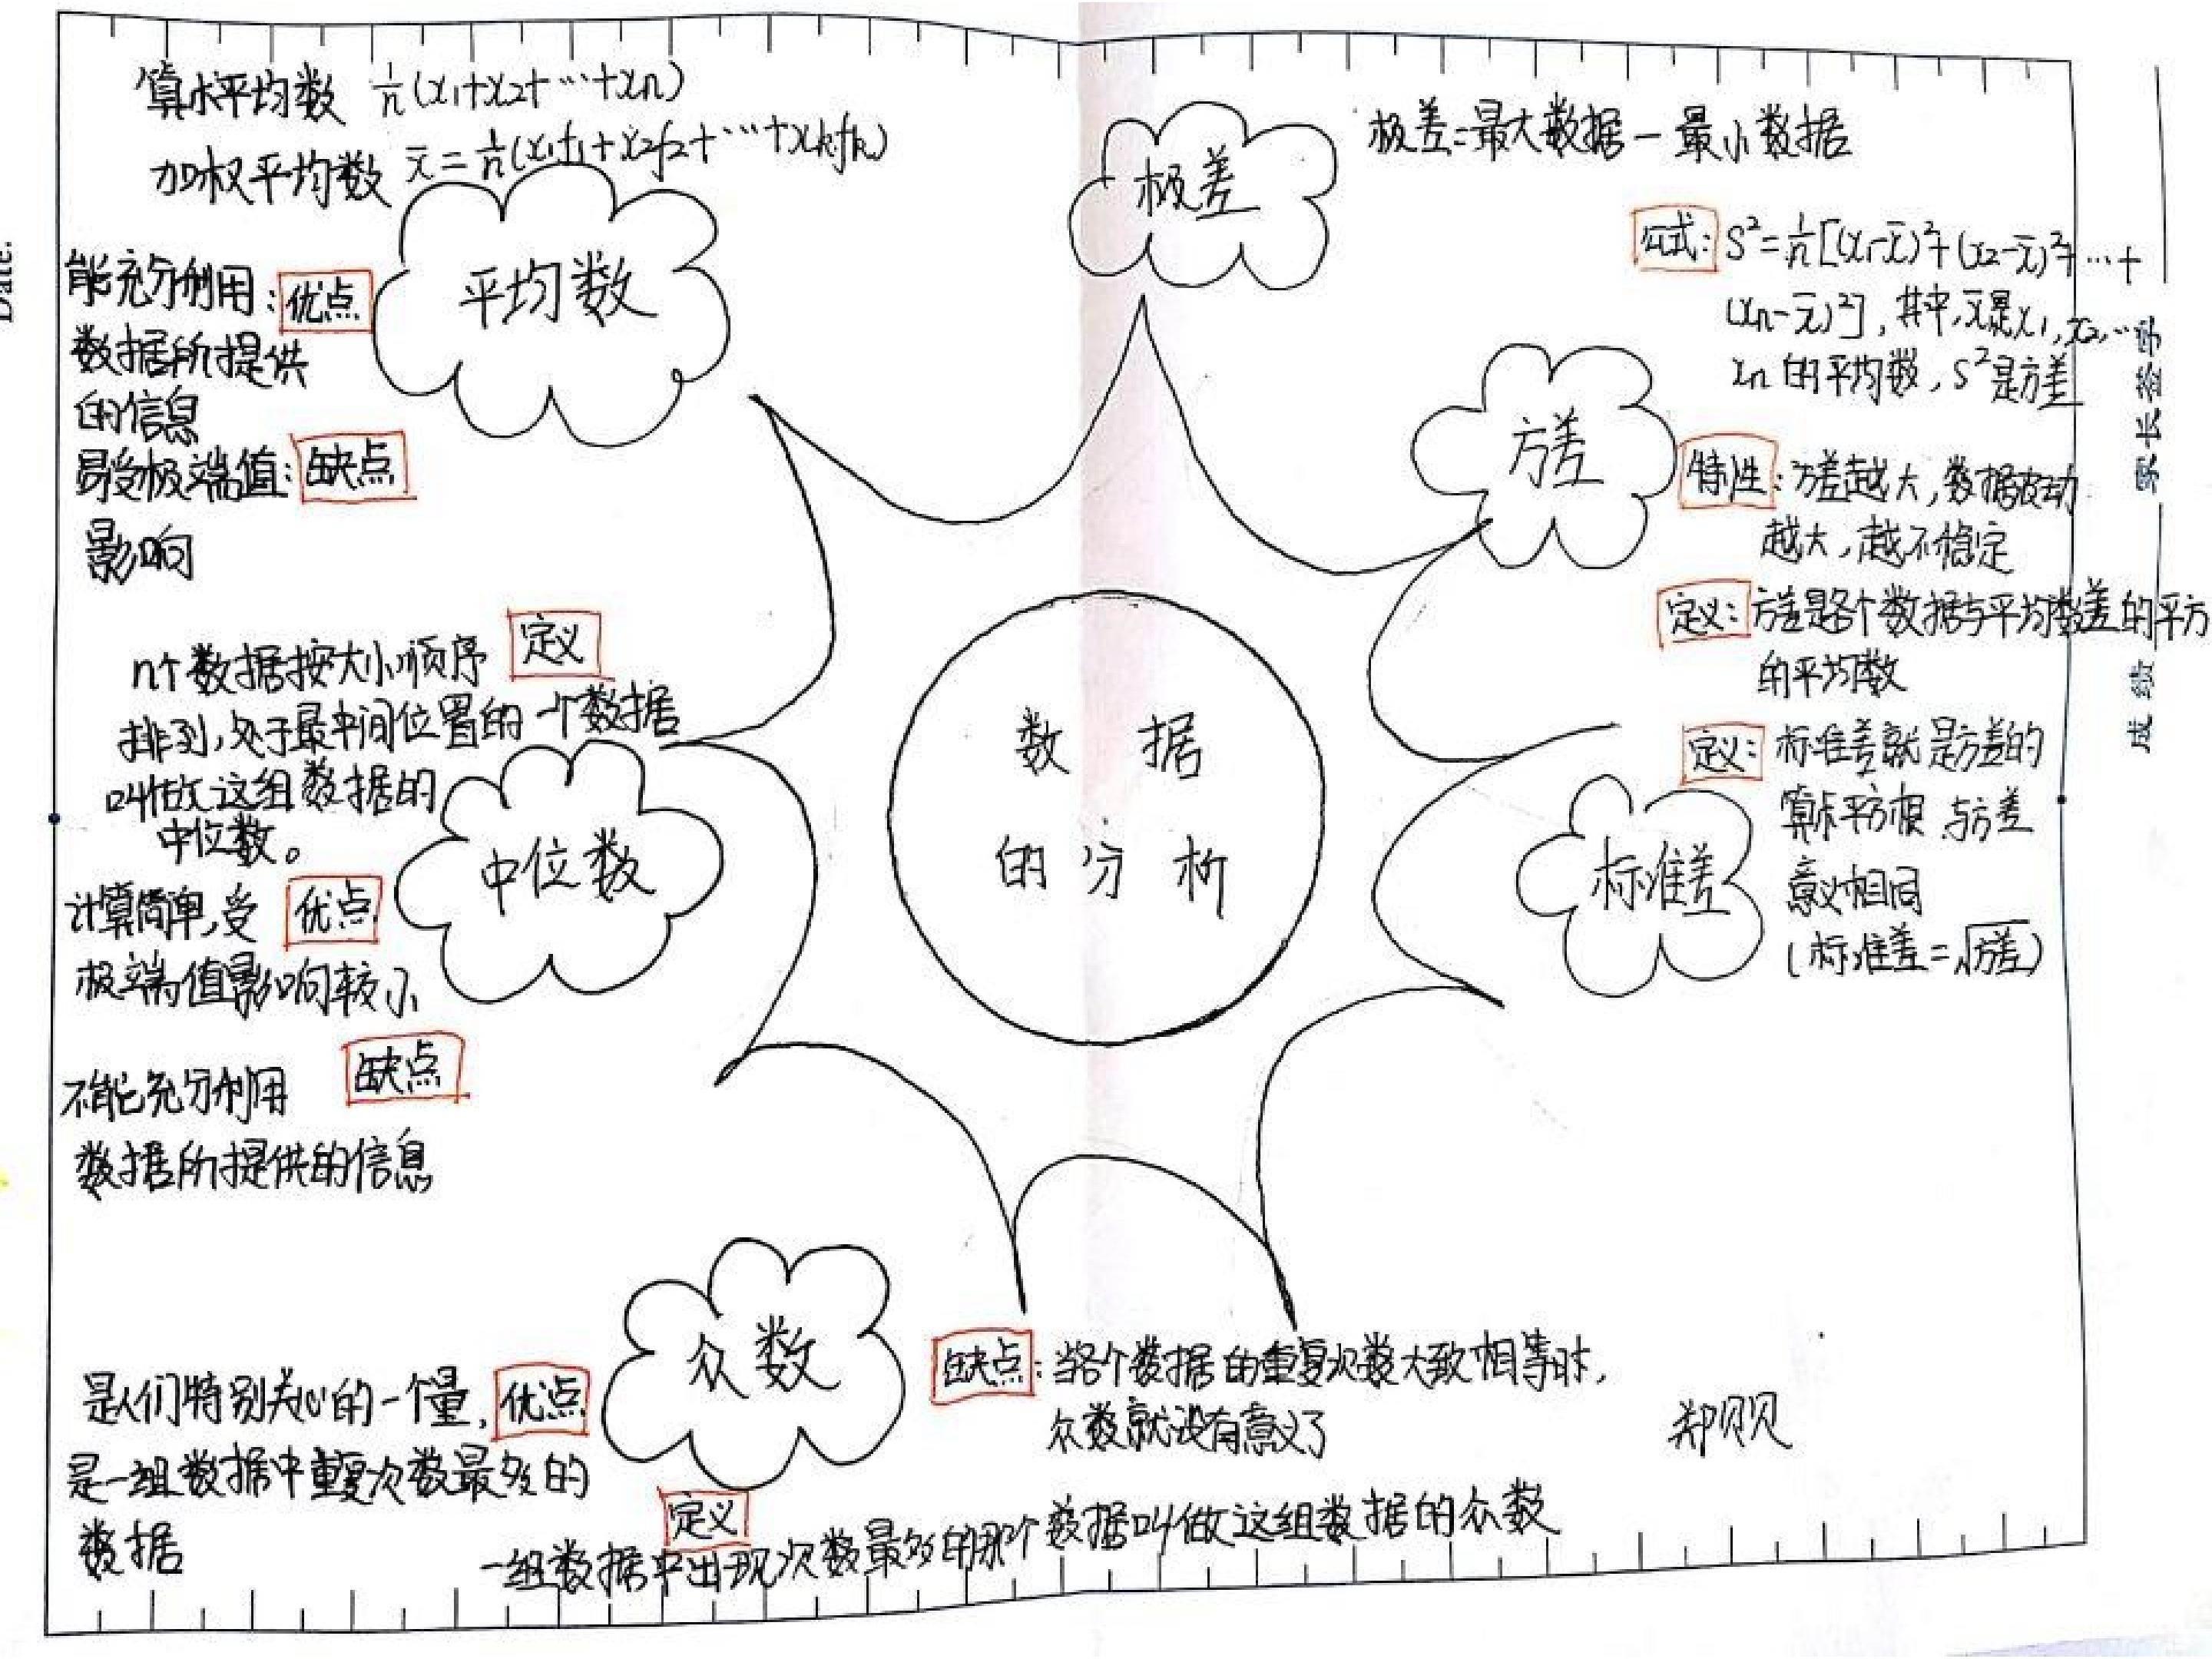 Date.
算术平均数 1/n(x₁+x₂+…+xn)
加权平均数 x̄=1/n(x₁f₁+x₂f₂+…+xkfk)
平均数
能充分利用:优点
数据所提供
的信息
易受极端值:缺点
影响
定义
n个数据按大小顺序
排列,处于最中间位置的一个数据
叫做这组数据的
中位数。
中位数
计算简单,受 优点
极端值影响较小
不能充分利用 缺点
数据所提供的信息
众数
是人们特别关心的一个量, 优点
是一组数据中重复次数最多的
数据
缺点:当各个数据的重复次数大致相等时,
众数就没有意义了
定义
一组数据中出现次数最多的那个数据叫做这组数据的众数
数据
的分析
极差
极差=最大数据-最小数据
方差
公式:S²=1/n[(x₁-x̄)²+(x₂-x̄)²+…+
(xn-x̄)²],其中,x̄是x₁,x₂,…
xn的平均数,S²是方差
特性:方差越大,数据波动
越大,越不稳定
定义:方差是各个数据与平均数差的平方
的平均数
标准差
定义:标准差就是方差的
算术平方根 与方差
意义相同
(标准差=√方差)
郑贝贝
成绩 家长签字